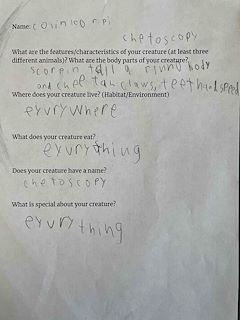 Name:
chetoscopy
What are the features/characteristics of your creature (at least three
different animals)? What are the body parts of your creature?
scorpin tail a body
and cheetah claws, teeth and speed
Where does your creature live? (Habitat/Environment)
eyvrywhere
What does your creature eat?
eyvrything
Does your creature have a name?
chetoscopy
What is special about your creature?
eyvrything